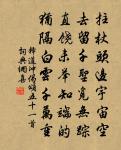 拄杖頭邊宇宙空
去留千聖覓無踪
直饒未舉知端的
猶隔白雲千萬重
釋道沖偈頌五十一首
詞典網喜